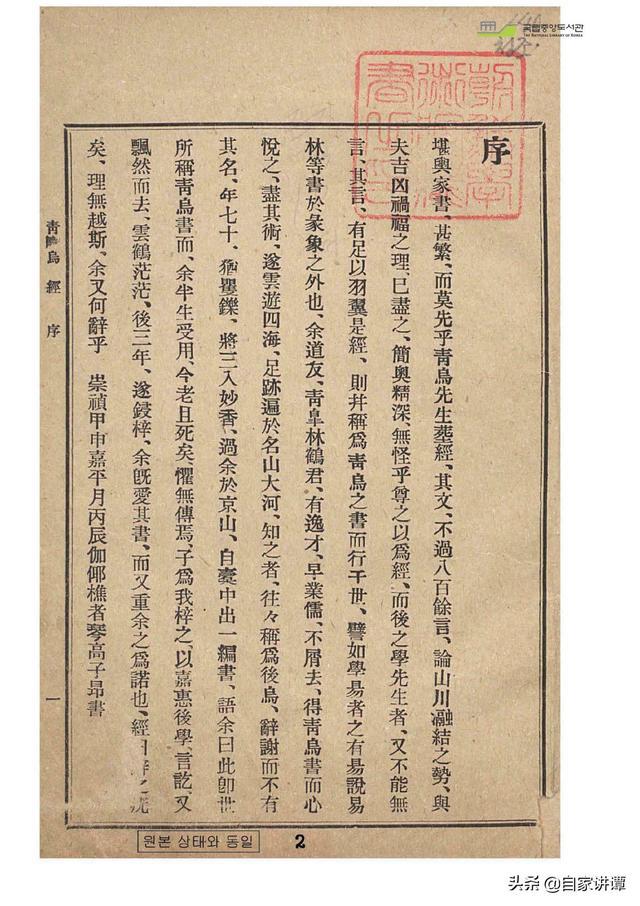 국립중앙도서관
THE NATIONAL LIBRARY OF KOREA
序
堪輿家書、甚繁、而莫先乎靑烏先生葬經、其文、不過八百餘言、論山川瀜結之勢、與
夫吉凶禍福之理、已盡之、簡奧精深、無怪乎尊之以爲經、而後之學先生者、又不能無
言、其言、有足以羽翼是經、則幷稱爲靑烏之書而行于世、譬如學易者之有易說易
林等書於彖象之外也、余道友、靑皐林鶴君、有逸才、早業儒、不屑去、得靑烏書而心
悅之、盡其術、遂雲遊四海、足跡遍於名山大河、知之者、往々稱爲後烏、辭謝而不有
其名、年七十、猶矍鑠、將三入妙香、過余於京山、自橐中出一編書、語余曰此卽世
所稱靑烏書而、余半生受用、今老且死矣、懼無傳焉、子爲我梓之、以嘉惠後學、言訖、又
飄然而去、雲鶴茫茫、後三年、遂鋟梓、余旣愛其書、而又重余之爲諾也、經曰
矣、理無越斯、余又何辭乎 崇禎甲申嘉平月丙辰伽倻樵者琴高子昻書
靑烏經 序
一
원본 상태와 동일
2
头条 @自家讲谭